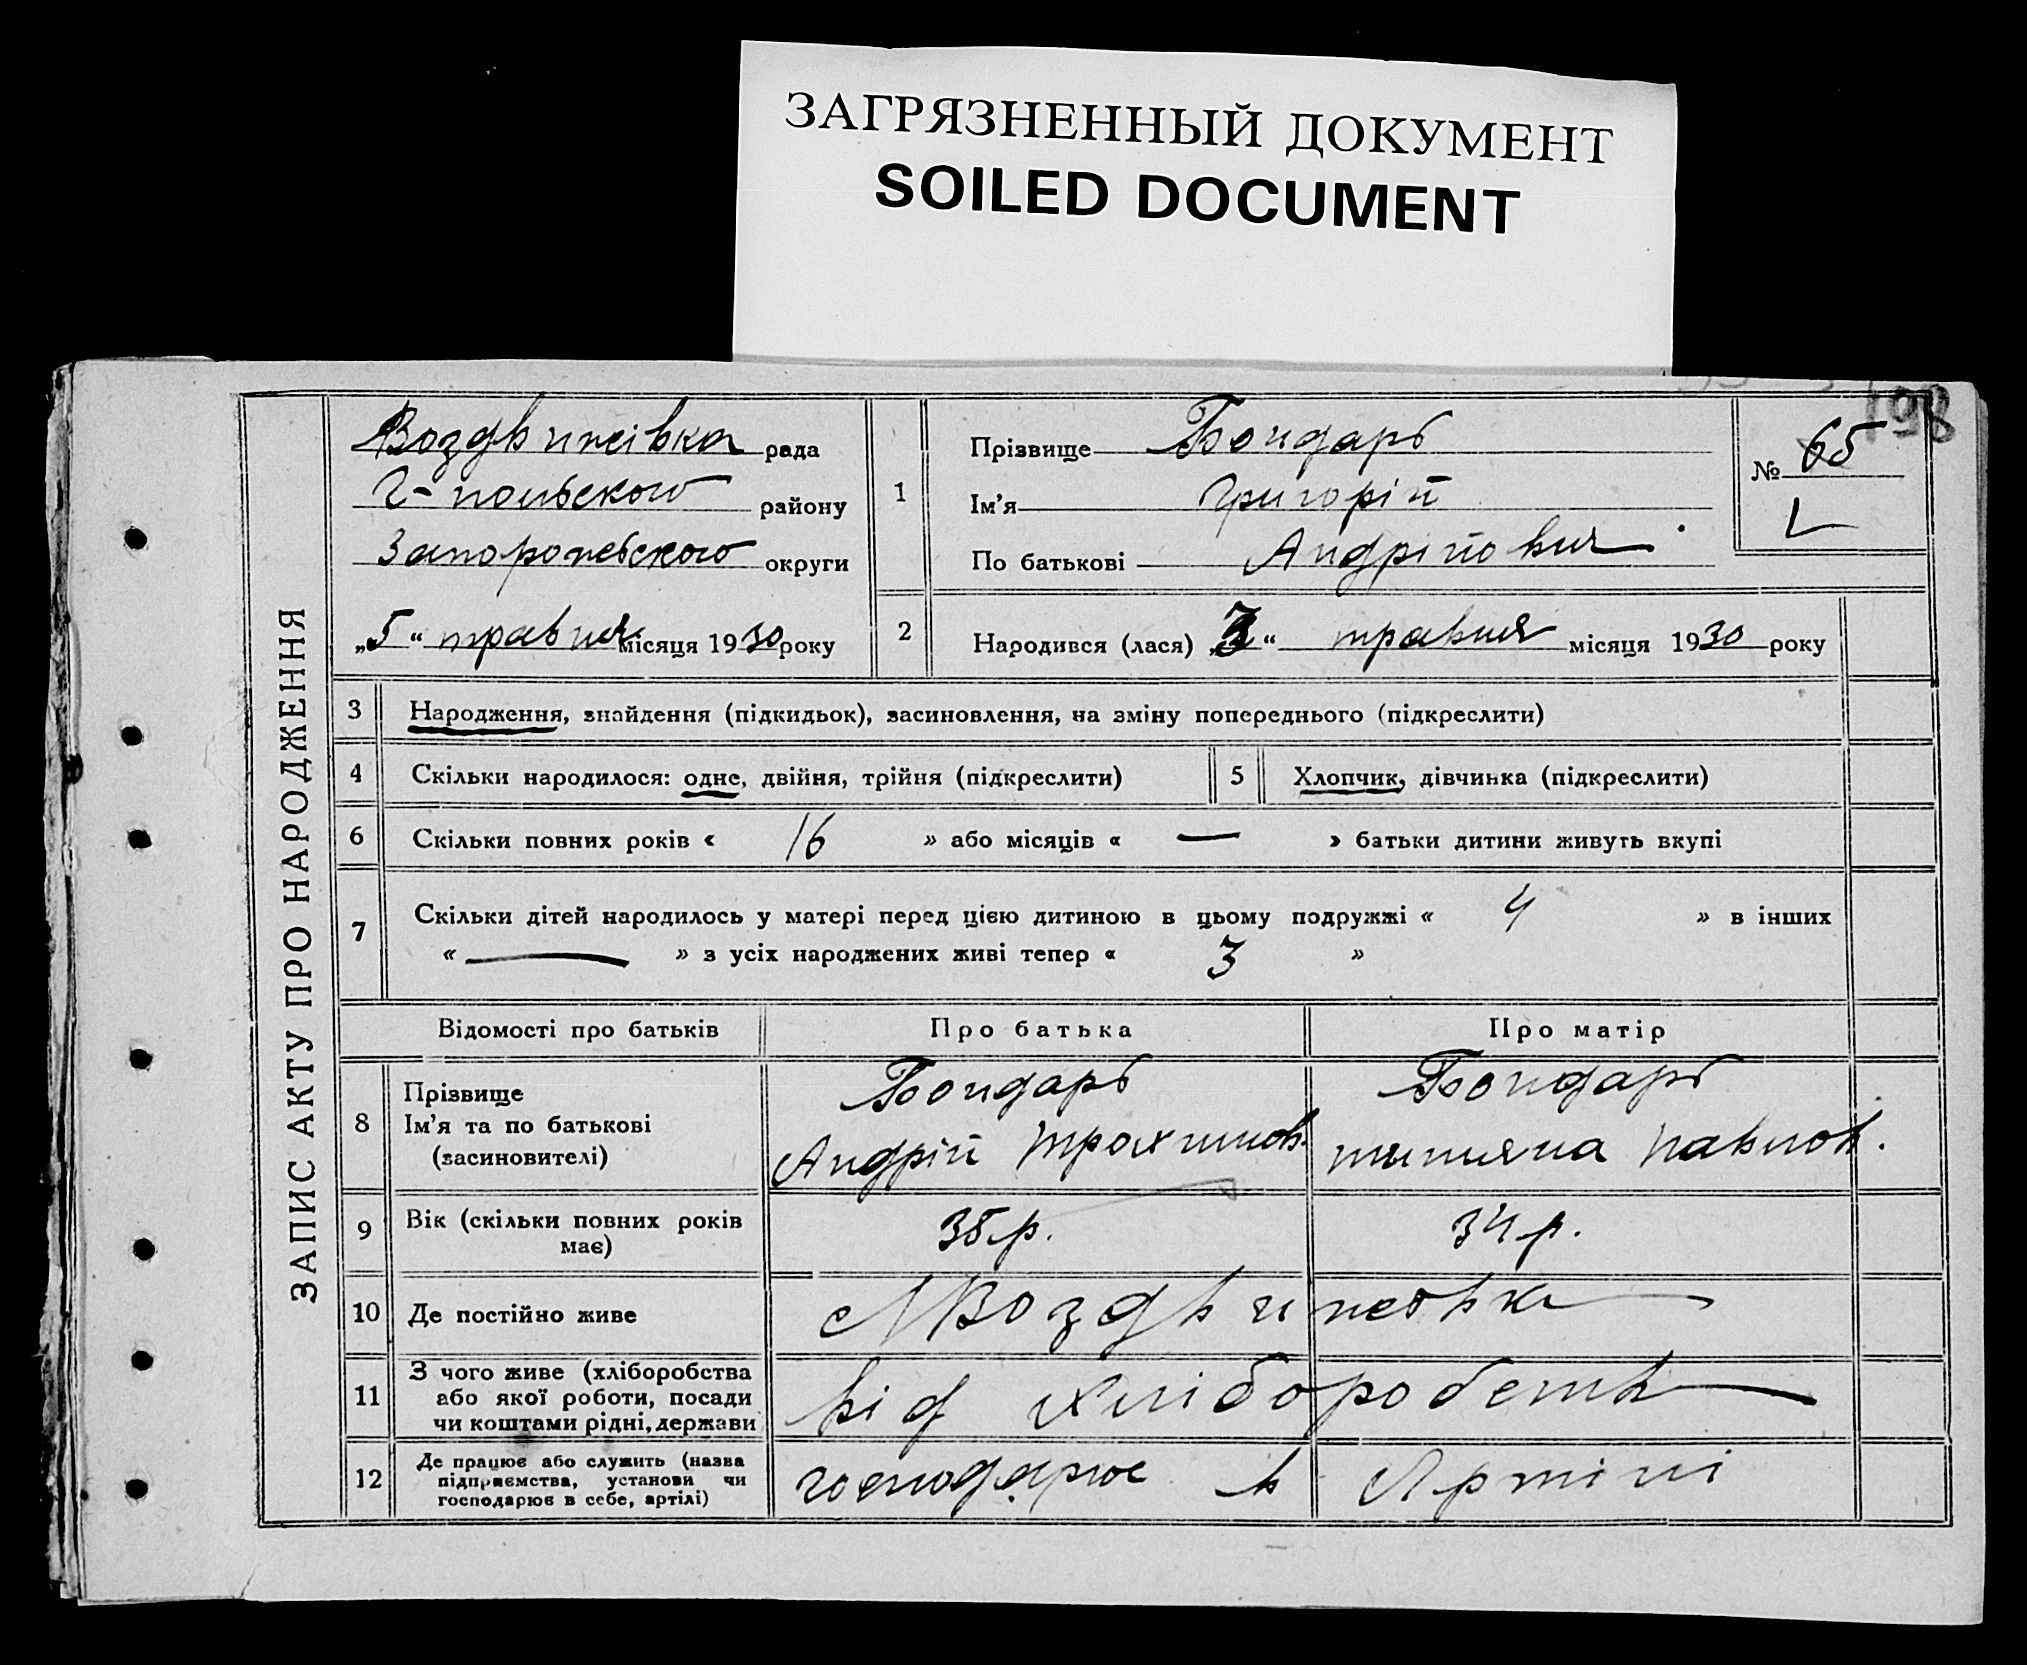 ЗАГРЯЗНЕННЫЙ ДОКУМЕНТ
SOILED DOCUMENT
198
ЗАПИС АКТУ ПРО НАРОДЖЕННЯ
Воздвижівка рада
Г-польського району
Запорожського округи
„5“ травня місяця 1930 року
1
Прізвище Бондарь
Ім'я Григорій
По батькові Андрійович
№ 65
2
Народився (лася) „3“ травня місяця 1930 року
3 Народження, знайдення (підкидьок), засиновлення, на зміну попереднього (підкреслити)
4 Скільки народилося: одне, двійня, трійня (підкреслити)
5 Хлопчик, дівчинка (підкреслити)
6 Скільки повних років « 16 » або місяців « — » батьки дитини живуть вкупі
7 Скільки дітей народилось у матері перед цією дитиною в цьому подружжі « 4 » в інших
« — » з усіх народжених живі тепер « 3 »
Відомості про батьків Про батька Про матір
8 Прізвище
Ім'я та по батькові
(засиновителі)
Бондарь
Андрій Трохимов.
Бондарь
Титяна Павлов.
9 Вік (скільки повних років
має)
35 р. 34 р.
10 Де постійно живе Воздвижевка
11 З чого живе (хліборобства
або якої роботи, посади
чи коштами рідні, держави
від хліборобств
12 Де працює або служить (назва
підприємства, установи чи
господарює в себе, артілі)
господарює в Артілі